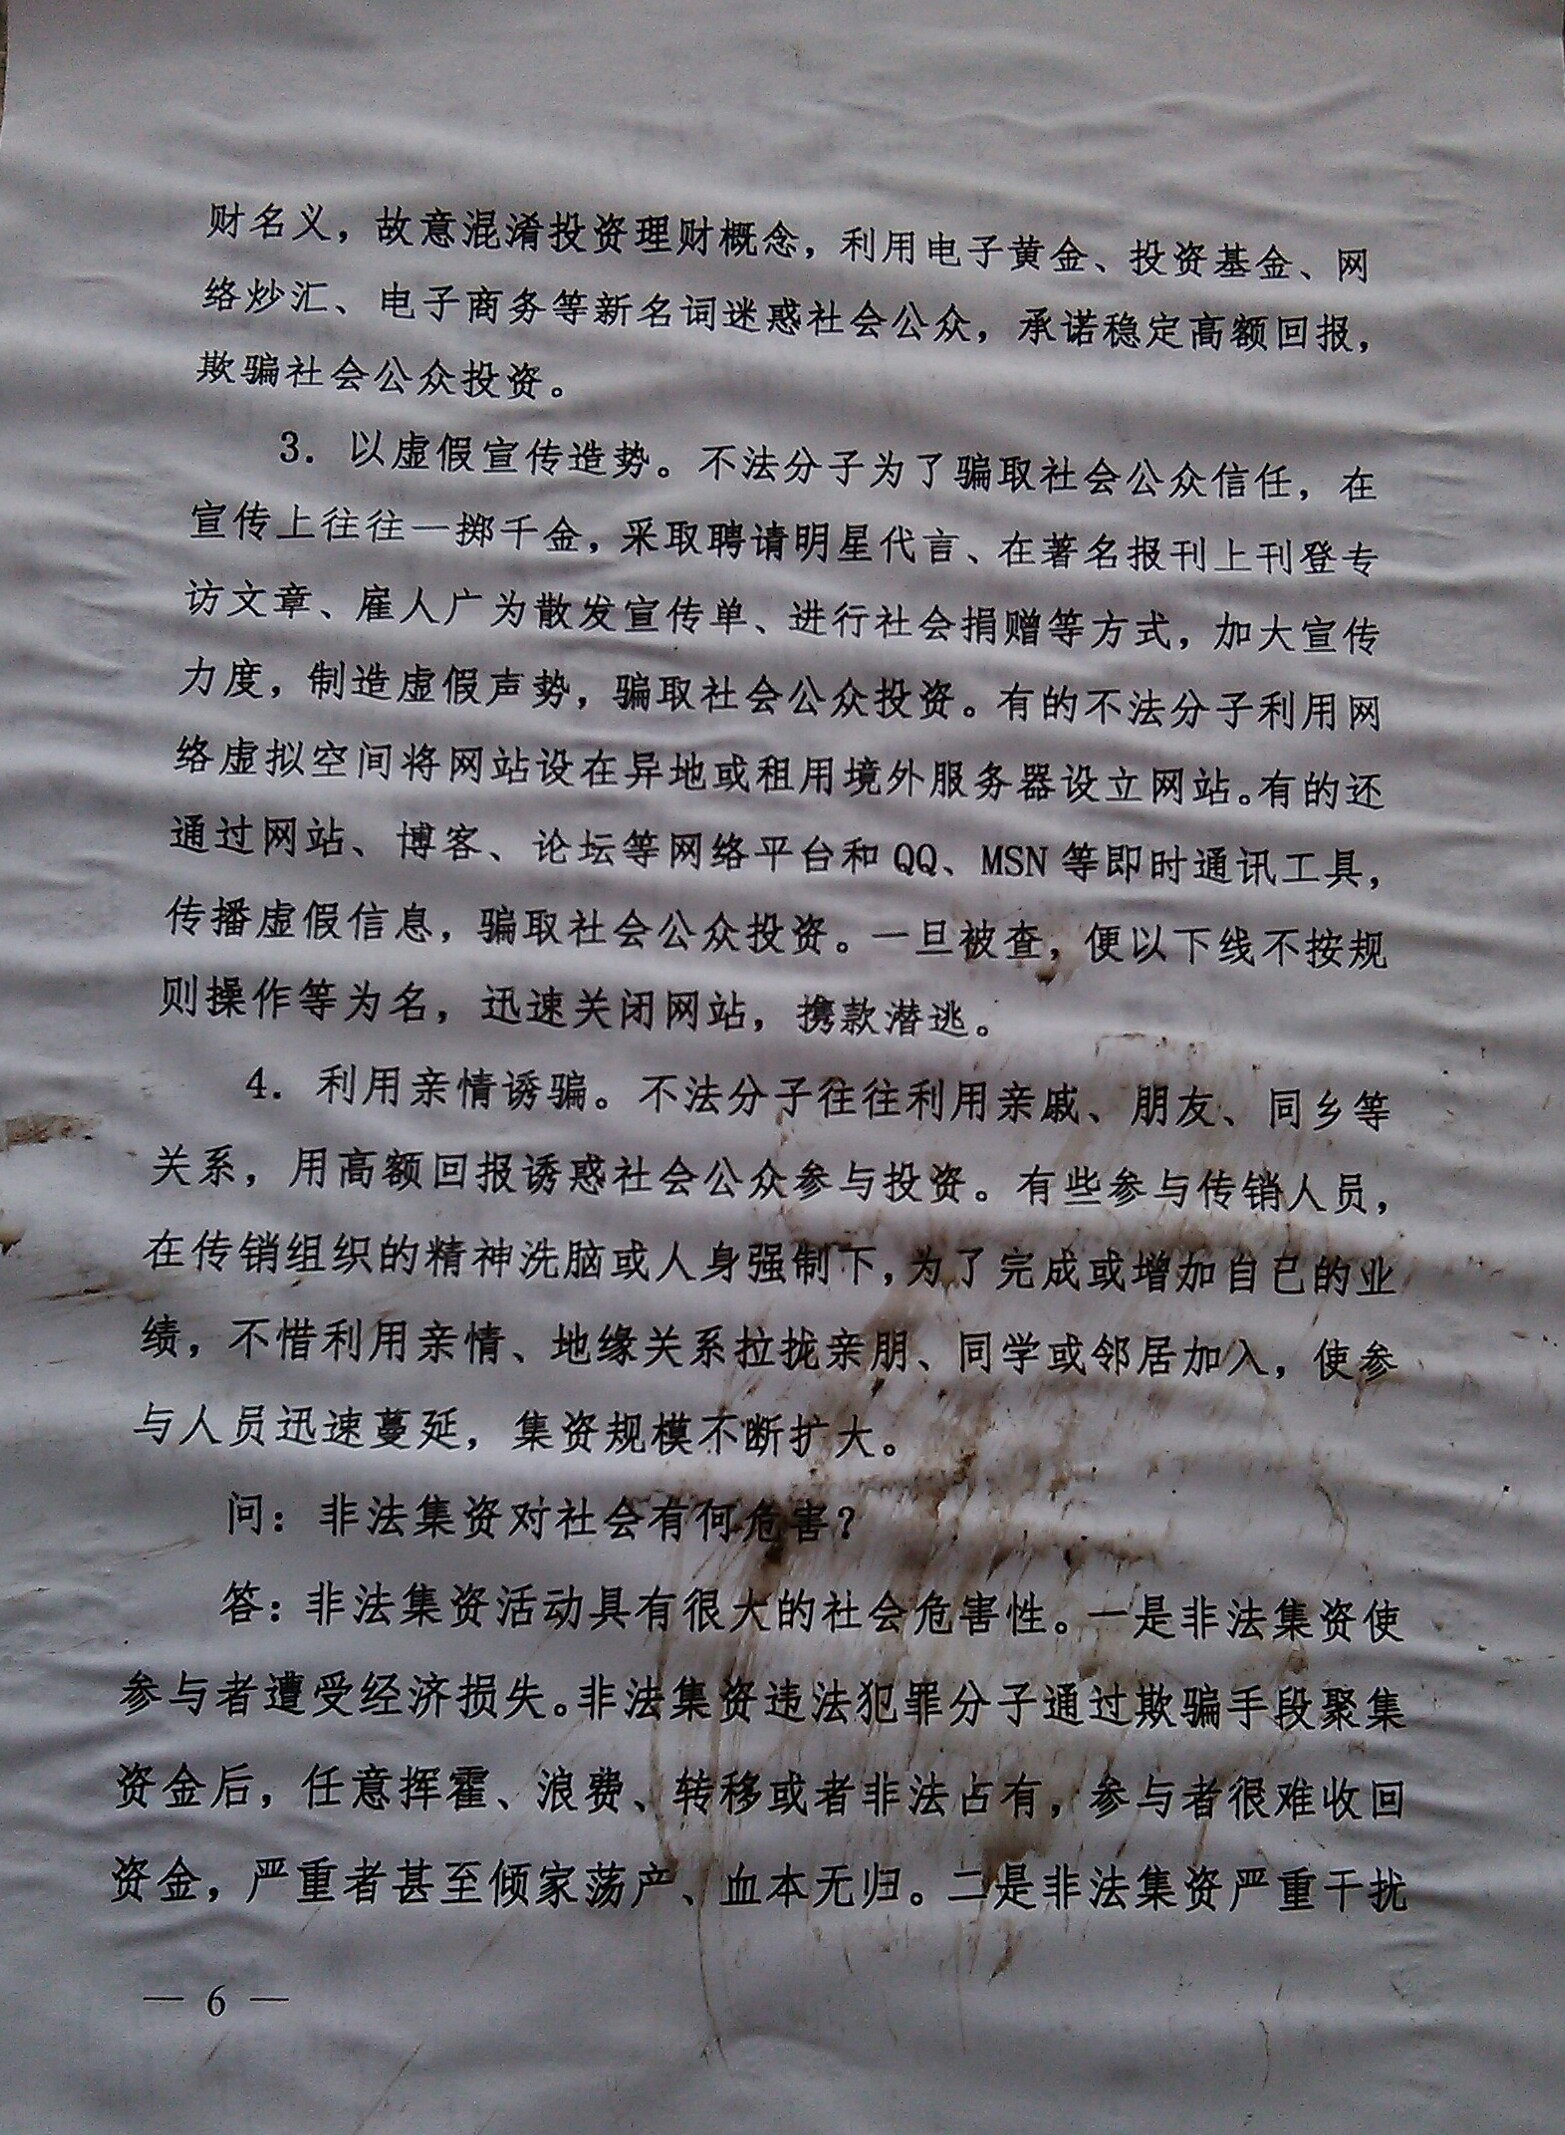 财名义，故意混淆投资理财概念，利用电子黄金、投资基金、网
络炒汇、电子商务等新名词迷惑社会公众，承诺稳定高额回报，
欺骗社会公众投资。
3．以虚假宣传造势。不法分子为了骗取社会公众信任，在
宣传上往往一掷千金，采取聘请明星代言、在著名报刊上刊登专
访文章、雇人广为散发宣传单、进行社会捐赠等方式，加大宣传
力度，制造虚假声势，骗取社会公众投资。有的不法分子利用网
络虚拟空间将网站设在异地或租用境外服务器设立网站。有的还
通过网站、博客、论坛等网络平台和QQ、MSN等即时通讯工具，
传播虚假信息，骗取社会公众投资。一旦被查，便以下线不按规
则操作等为名，迅速关闭网站，携款潜逃。
4．利用亲情诱骗。不法分子往往利用亲戚、朋友、同乡等
关系，用高额回报诱惑社会公众参与投资。有些参与传销人员，
在传销组织的精神洗脑或人身强制下，为了完成或增加自己的业
绩，不惜利用亲情、地缘关系拉拢亲朋、同学或邻居加入，使参
与人员迅速蔓延，集资规模不断扩大。
问：非法集资对社会有何危害？
答：非法集资活动具有很大的社会危害性。一是非法集资使
参与者遭受经济损失。非法集资违法犯罪分子通过欺骗手段聚集
资金后，任意挥霍、浪费、转移或者非法占有，参与者很难收回
资金，严重者甚至倾家荡产、血本无归。二是非法集资严重干扰
— 6 —